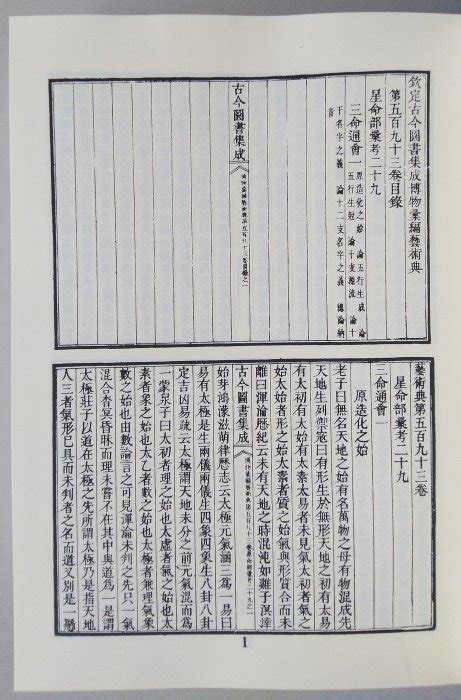 欽定古今圖書集成博物彙編藝術典
第五百九十三卷目錄
星命部彙考二十九
三命通會一 原造化之始 論五行生成 論五行生剋 論干支源流 論十干名字之義 論十二支名字之義 總論納音
古今圖書集成
藝術典第五百九十三卷
星命部彙考二十九
三命通會一
原造化之始
老子曰無名天地之始有名萬物之母有物混成先
天地生列禦寇曰有形生於無形天地之初有太易
有太初有太始有太素太易者未見氣太初者氣之
始太始者形之始太素者質之始氣與形質合而未
離曰渾淪歷紀云未有天地之時混沌如雞子溟涬
古今圖書集成
始芽鴻濛滋萌律歷志云太極元氣涵三為一易曰
易有太極是生兩儀兩儀生四象四象生八卦八卦
定吉凶易疏云太極謂天地未分之前元氣混而為
一蒙泉子曰太初者理之始也太虛者氣之始也太
素者象之始也太乙者數之始也太極者兼理氣象
數之始也由數論言之可見渾淪未判之先只一氣
混合杳冥昏昧而理未嘗不在其中與道為一是謂
太極莊子以道在太極之先所謂太極乃是指天地
人三者氣形已具而未判者之名而道又別是一懸
1